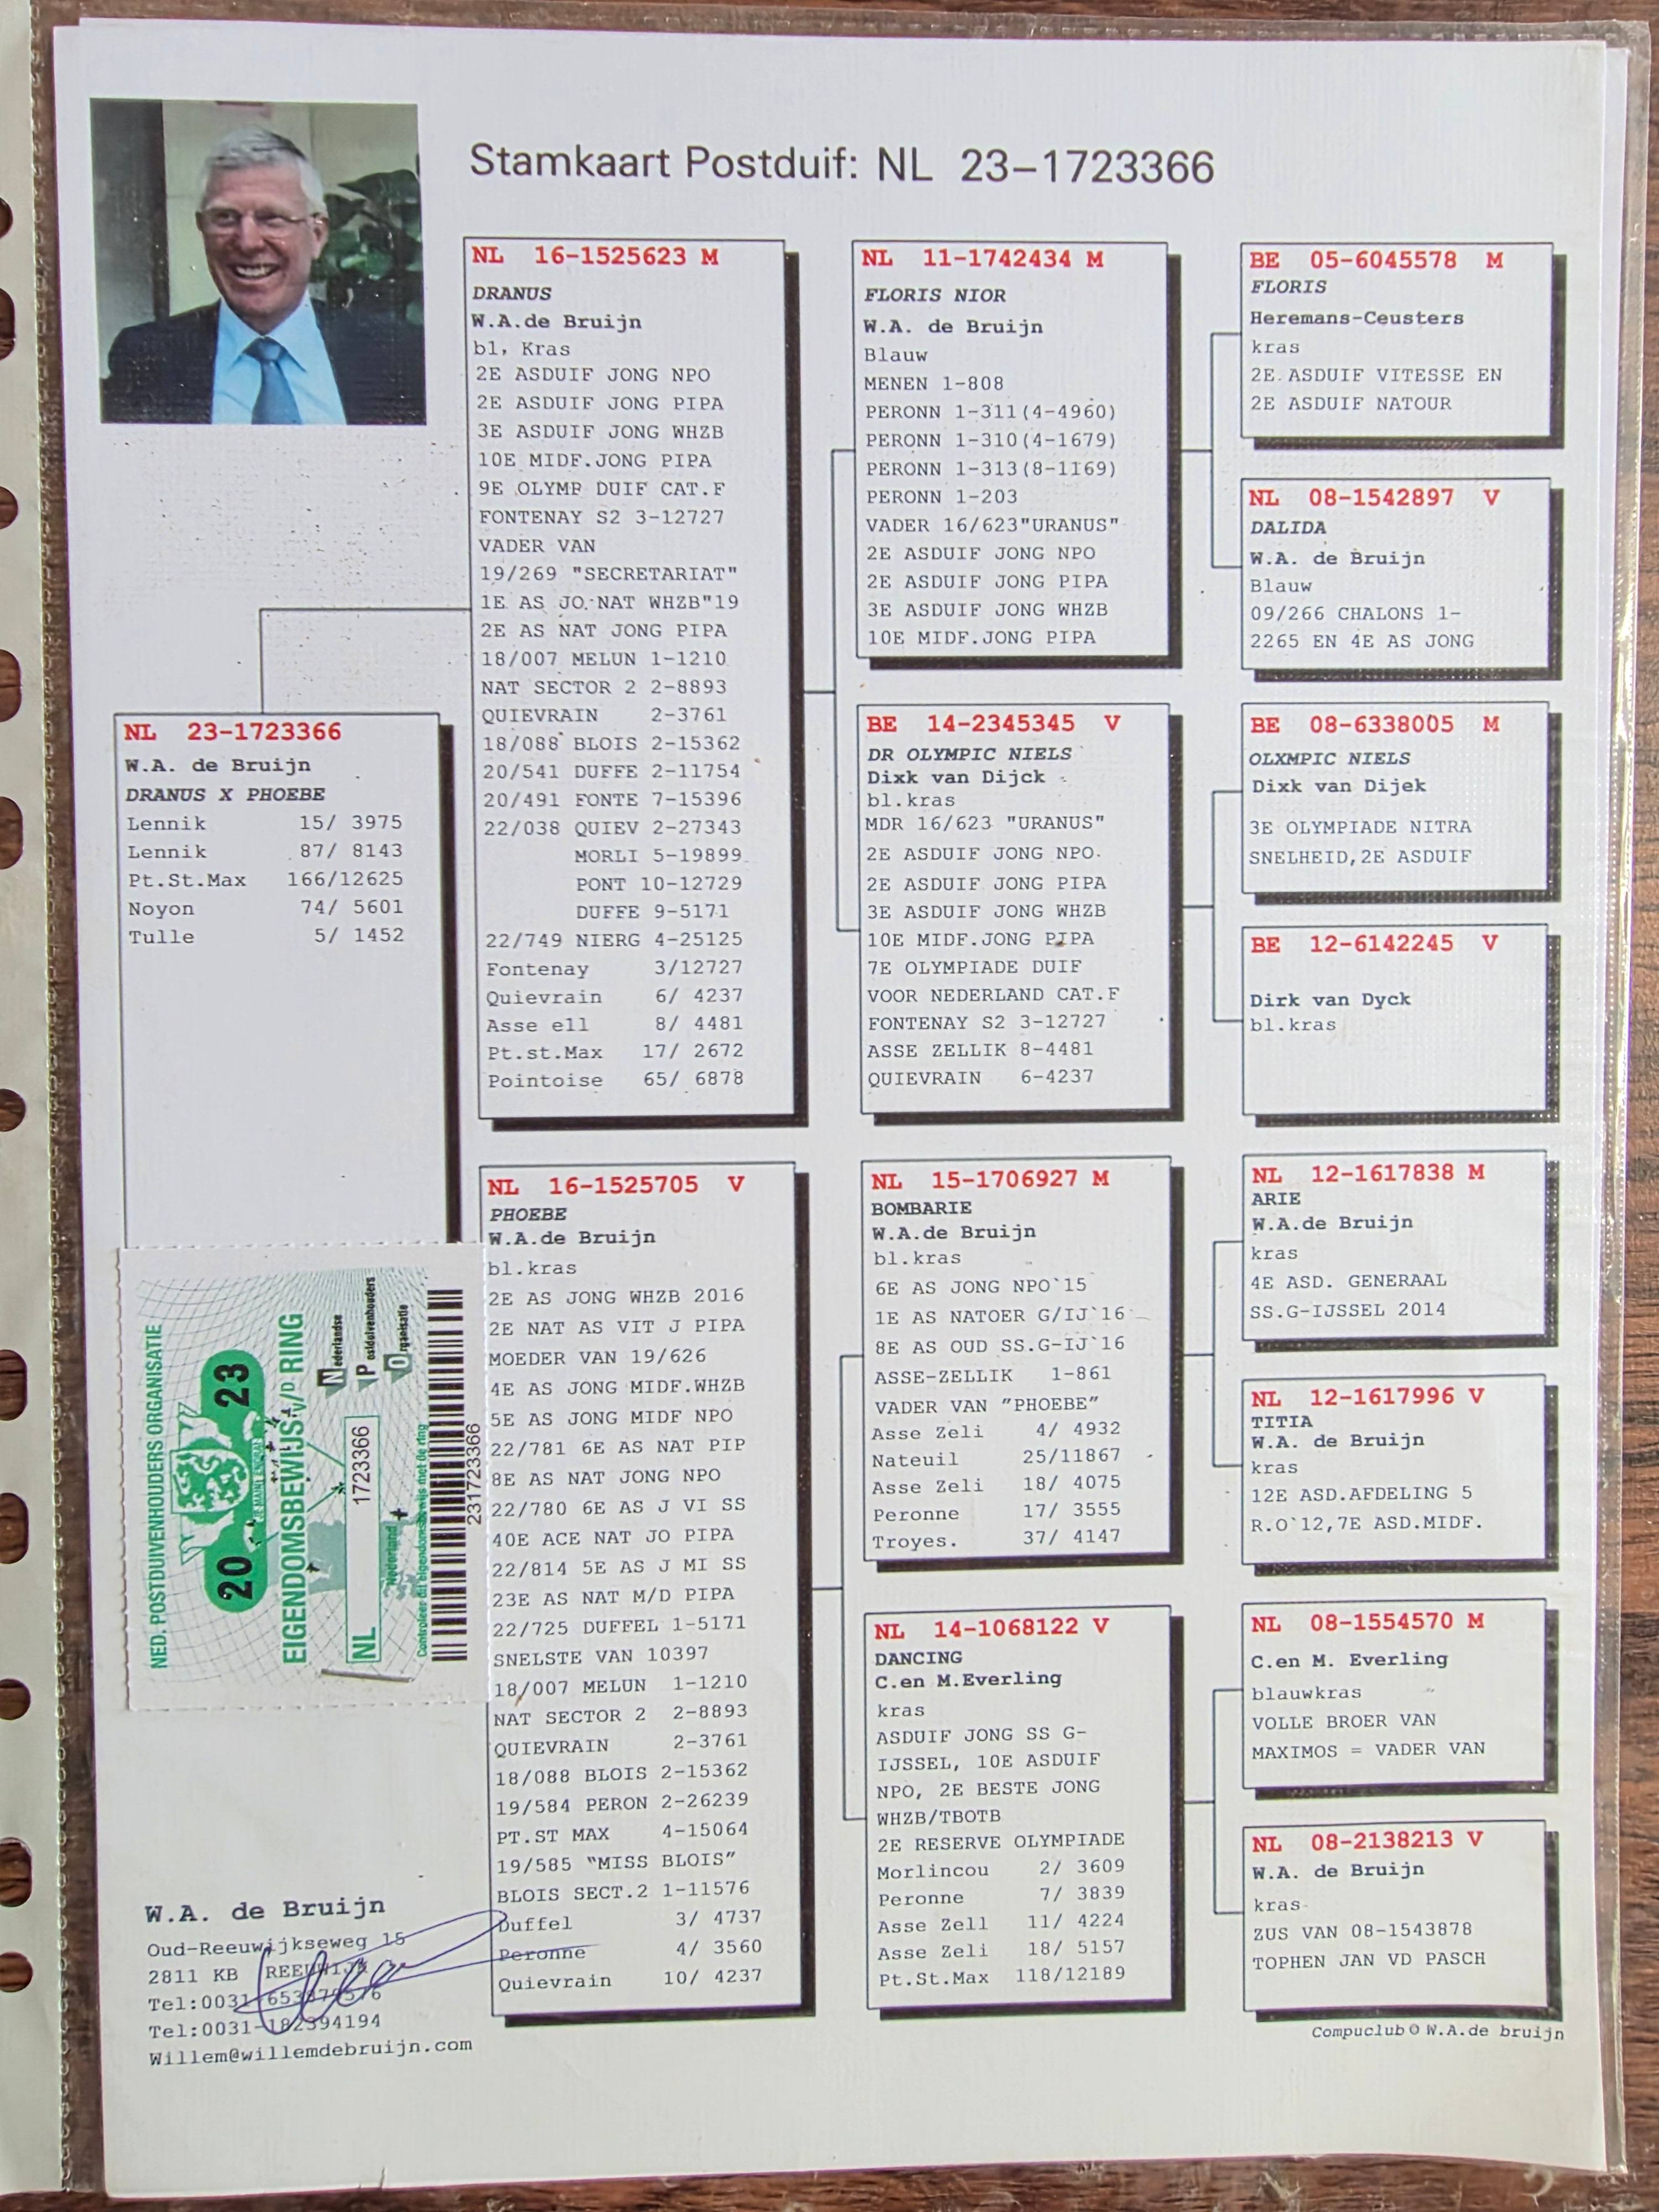 Stamkaart Postduif: NL 23-1723366
NL 23-1723366
W.A. de Bruijn
DRANUS X PHOEBE
Lennik 15/ 3975
Lennik 87/ 8143
Pt.St.Max 166/12625
Noyon 74/ 5601
Tulle 5/ 1452
NL 16-1525623 M
DRANUS
W.A.de Bruijn
bl, Kras
2E ASDUIF JONG NPO
2E ASDUIF JONG PIPA
3E ASDUIF JONG WHZB
10E MIDF.JONG PIPA
9E OLYMP DUIF CAT.F
FONTENAY S2 3-12727
VADER VAN
19/269 "SECRETARIAT"
1E AS JO.NAT WHZB"19
2E AS NAT JONG PIPA
18/007 MELUN 1-1210
NAT SECTOR 2 2-8893
QUIEVRAIN 2-3761
18/088 BLOIS 2-15362
20/541 DUFFE 2-11754
20/491 FONTE 7-15396
22/038 QUIEV 2-27343
MORLI 5-19899
PONT 10-12729
DUFFE 9-5171
22/749 NIERG 4-25125
Fontenay 3/12727
Quievrain 6/ 4237
Asse ell 8/ 4481
Pt.st.Max 17/ 2672
Pointoise 65/ 6878
NL 16-1525705 V
PHOEBE
W.A.de Bruijn
bl.kras
2E AS JONG WHZB 2016
2E NAT AS VIT J PIPA
MOEDER VAN 19/626
4E AS JONG MIDF.WHZB
5E AS JONG MIDF NPO
22/781 6E AS NAT PIP
8E AS NAT JONG NPO
22/780 6E AS J VI SS
40E ACE NAT JO PIPA
22/814 5E AS J MI SS
23E AS NAT M/D PIPA
22/725 DUFFEL 1-5171
SNELSTE VAN 10397
18/007 MELUN 1-1210
NAT SECTOR 2 2-8893
QUIEVRAIN 2-3761
18/088 BLOIS 2-15362
19/584 PERON 2-26239
PT.ST MAX 4-15064
19/585 "MISS BLOIS"
BLOIS SECT.2 1-11576
Duffel 3/ 4737
Peronne 4/ 3560
Quievrain 10/ 4237
NL 11-1742434 M
FLORIS NIOR
W.A. de Bruijn
Blauw
MENEN 1-808
PERONN 1-311(4-4960)
PERONN 1-310(4-1679)
PERONN 1-313(8-1169)
PERONN 1-203
VADER 16/623"URANUS"
2E ASDUIF JONG NPO
2E ASDUIF JONG PIPA
3E ASDUIF JONG WHZB
10E MIDF.JONG PIPA
BE 14-2345345 V
DR OLYMPIC NIELS
Dixk van Dijck
bl.kras
MDR 16/623 "URANUS"
2E ASDUIF JONG NPO.
2E ASDUIF JONG PIPA
3E ASDUIF JONG WHZB
10E MIDF.JONG PIPA
7E OLYMPIADE DUIF
VOOR NEDERLAND CAT.F
FONTENAY S2 3-12727
ASSE ZELLIK 8-4481
QUIEVRAIN 6-4237
NL 15-1706927 M
BOMBARIE
W.A.de Bruijn
bl.kras
6E AS JONG NPO`15
1E AS NATOER G/IJ`16
8E AS OUD SS.G-IJ`16
ASSE-ZELLIK 1-861
VADER VAN "PHOEBE"
Asse Zeli 4/ 4932
Nateuil 25/11867
Asse Zeli 18/ 4075
Peronne 17/ 3555
Troyes. 37/ 4147
NL 14-1068122 V
DANCING
C.en M.Everling
kras
ASDUIF JONG SS G-
IJSSEL, 10E ASDUIF
NPO, 2E BESTE JONG
WHZB/TBOTB
2E RESERVE OLYMPIADE
Morlincou 2/ 3609
Peronne 7/ 3839
Asse Zell 11/ 4224
Asse Zeli 18/ 5157
Pt.St.Max 118/12189
BE 05-6045578 M
FLORIS
Heremans-Ceusters
kras
2E.ASDUIF VITESSE EN
2E ASDUIF NATOUR
NL 08-1542897 V
DALIDA
W.A. de Bruijn
Blauw
09/266 CHALONS 1-
2265 EN 4E AS JONG
BE 08-6338005 M
OLXMPIC NIELS
Dixk van Dijek
3E OLYMPIADE NITRA
SNELHEID,2E ASDUIF
BE 12-6142245 V
Dirk van Dyck
bl.kras
NL 12-1617838 M
ARIE
W.A.de Bruijn
kras
4E ASD. GENERAAL
SS.G-IJSSEL 2014
NL 12-1617996 V
TITIA
W.A. de Bruijn
kras
12E ASD.AFDELING 5
R.O`12,7E ASD.MIDF.
NL 08-1554570 M
C.en M. Everling
blauwkras
VOLLE BROER VAN
MAXIMOS = VADER VAN
NL 08-2138213 V
W.A. de Bruijn
kras
ZUS VAN 08-1543878
TOPHEN JAN VD PASCH
Compuclub © W.A.de bruijn
NED. POSTDUIVENHOUDERS ORGANISATIE
20 23
EIGENDOMSBEWIJS v/d RING
Nederlandse
Postduivenhouders
Organisatie
NL 1723366
Nederland
Controleer dit eigendomsbewijs met de ring
231723366
W.A. de Bruijn
Oud-Reeuwijkseweg 15
2811 KB REEUWIJK
Tel:0031
Tel:0031-182394194
Willem@willemdebruijn.com